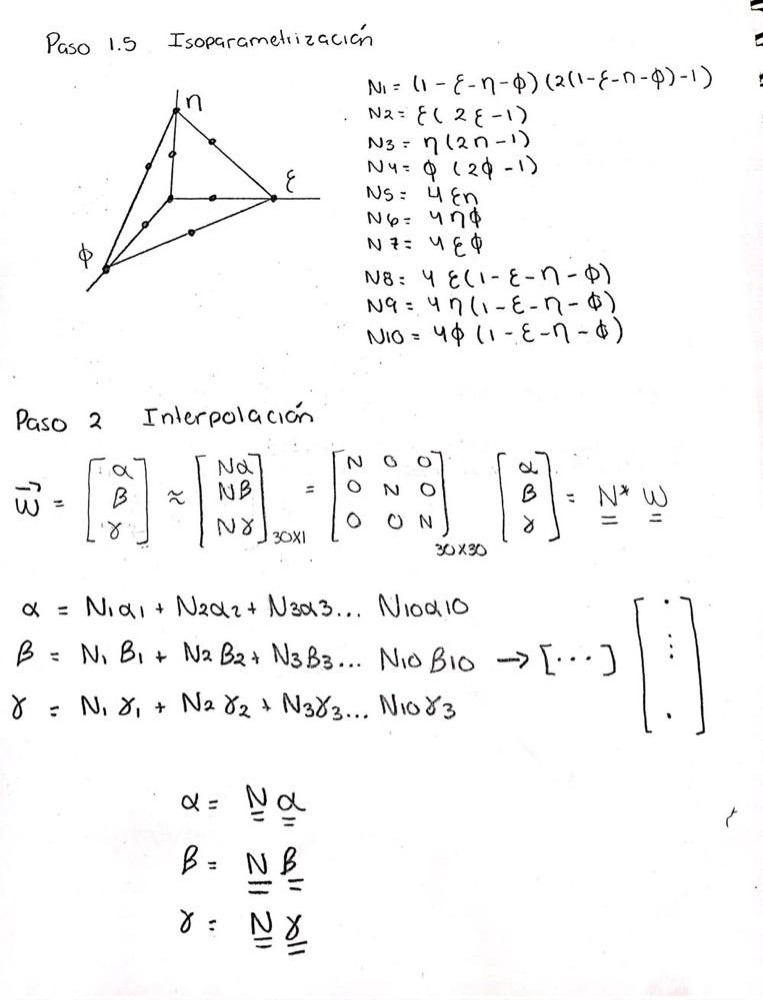 Paso 1.5 Isoparametrización
η
ε
ϕ
N1 = (1 - ε - η - ϕ) (2(1 - ε - η - ϕ) - 1)
N2 = ε ( 2 ε - 1)
N3 = η (2η - 1)
N4 = ϕ (2ϕ - 1)
N5 = 4 εη
N6 = 4 ηϕ
N7 = 4 ε ϕ
N8 = 4 ε(1 - ε - η - ϕ)
N9 = 4 η (1 - ε - η - ϕ)
N10 = 4ϕ (1 - ε - η - ϕ)
Paso 2 Interpolación
w⃗ = [α β γ] ≈ [Nα Nβ Nγ] 30x1 = [N 0 0 0 N 0 0 0 N] 30x30 [α β γ] = N* W
α = N1α1 + N2α2 + N3α3... N10α10
β = N1 β1 + N2 β2 + N3β3... N10 β10 → [...] [. ⋮ .]
γ = N1 γ1 + N2 γ2 + N3γ3... N10γ3
α = N α
β = N β
γ = N γ